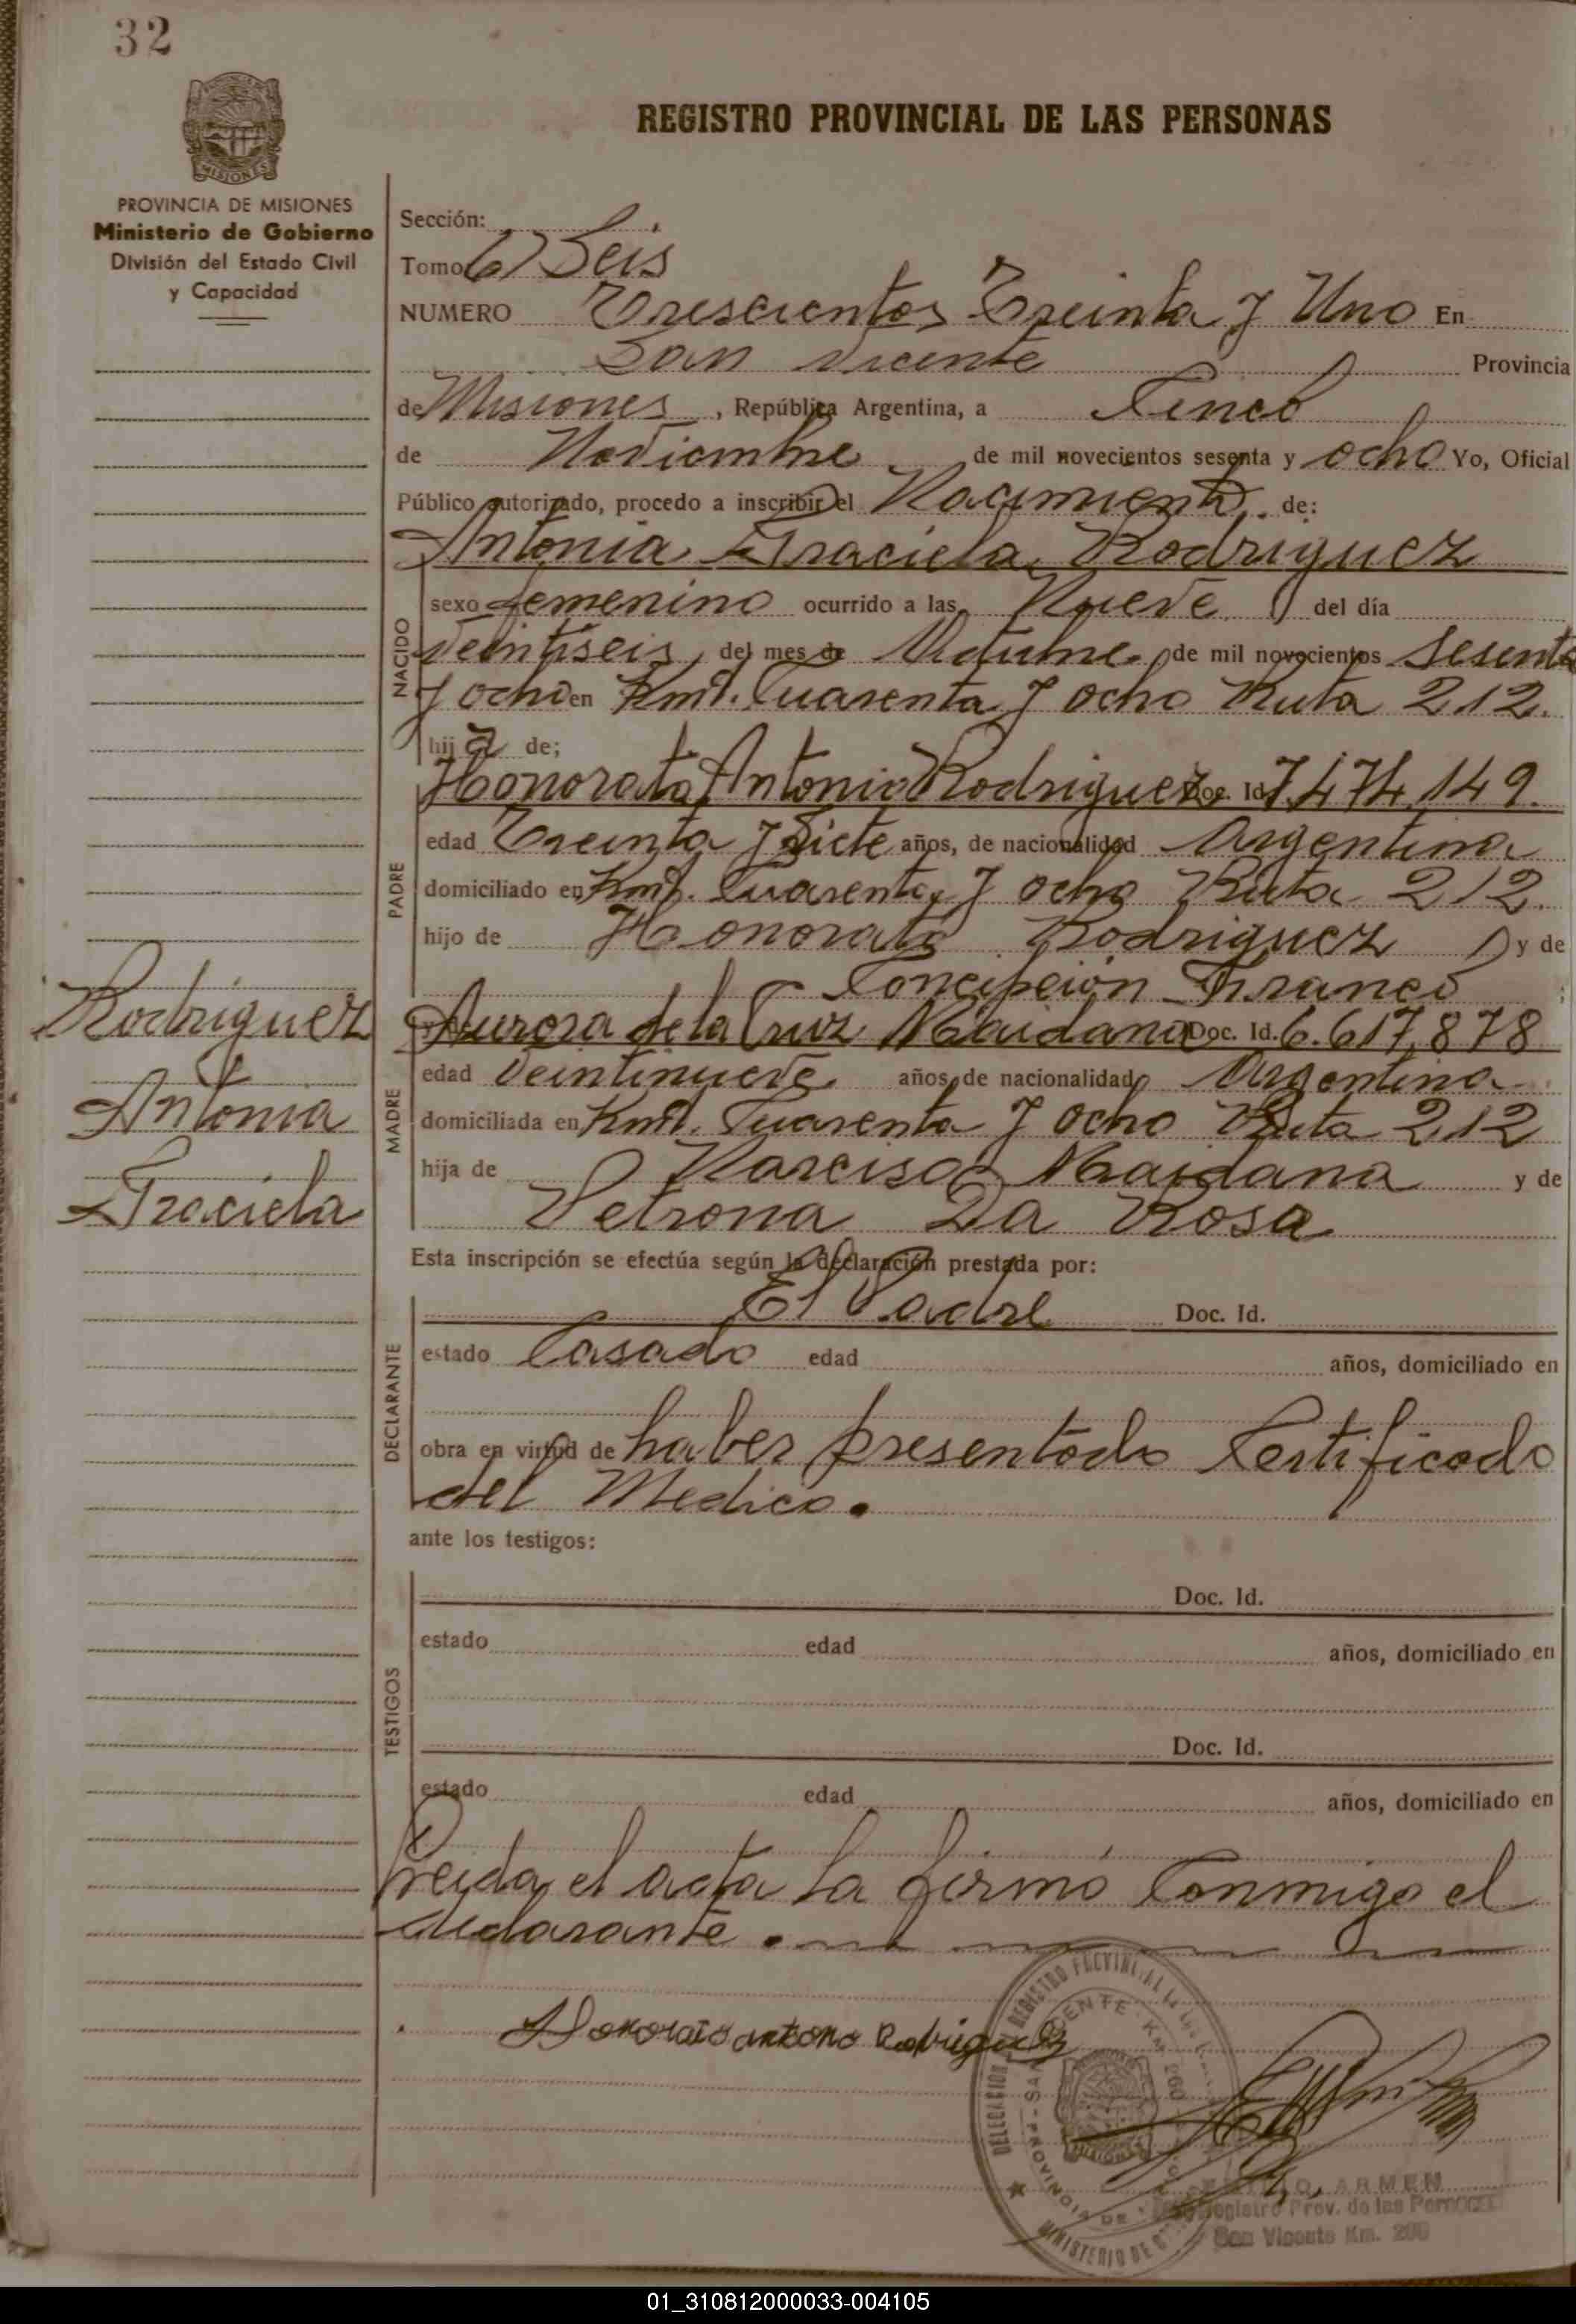 32
MISIONES
REGISTRO PROVINCIAL DE LAS PERSONAS
PROVINCIA DE MISIONES
Ministerio de Gobierno
División del Estado Civil
y Capacidad
Sección:
Tomo 6) Seis
NUMERO Trescientos Treinta y Uno En
San Vicente Provincia
de Misiones, República Argentina, a Cinco
de Noviembre de mil novecientos sesenta y ocho Yo, Oficial
Público autorizado, procedo a inscribir el Nacimiento de:
Antonia Graciela Rodriguez
NACIDO
sexo femenino ocurrido a las Nueve del día
veintiseis del mes de Octubre de mil novecientos sesenta
y ocho en Kmt. Cuarenta y ocho Ruta 212.
hija de;
PADRE
Honorato Antonio Rodriguez Doc. Id 7.474.149.
edad Treinta y Siete años, de nacionalidad Argentina
domiciliado en Kmt. Cuarenta y ocho Ruta 212.
hijo de Honorato Rodriguez y de
Concepción Franco ;
Rodriguez
Antonia
Graciela
MADRE
Aurora de la Cruz Maidana Doc. Id. 6.617.878
edad Veintinueve años, de nacionalidad Argentina
domiciliada en Kmt. Cuarenta y ocho Ruta 212
hija de Narciso Maidana y de
Petrona Da Rosa
Esta inscripción se efectúa según la declaración prestada por:
DECLARANTE
El Padre Doc. Id.
estado Casado edad años, domiciliado en
obra en virtud de haber presentado Certificado
del Medico.
ante los testigos:
TESTIGOS
Doc. Id.
estado edad años, domiciliado en
Doc. Id.
estado edad años, domiciliado en
Leida el acta la firmó Conmigo el
declarante.
Honorato antonio Rodriguez
ARMEN
Registro Prov. de las Personas
San Vicente Km. 260
01_310812000033-004105